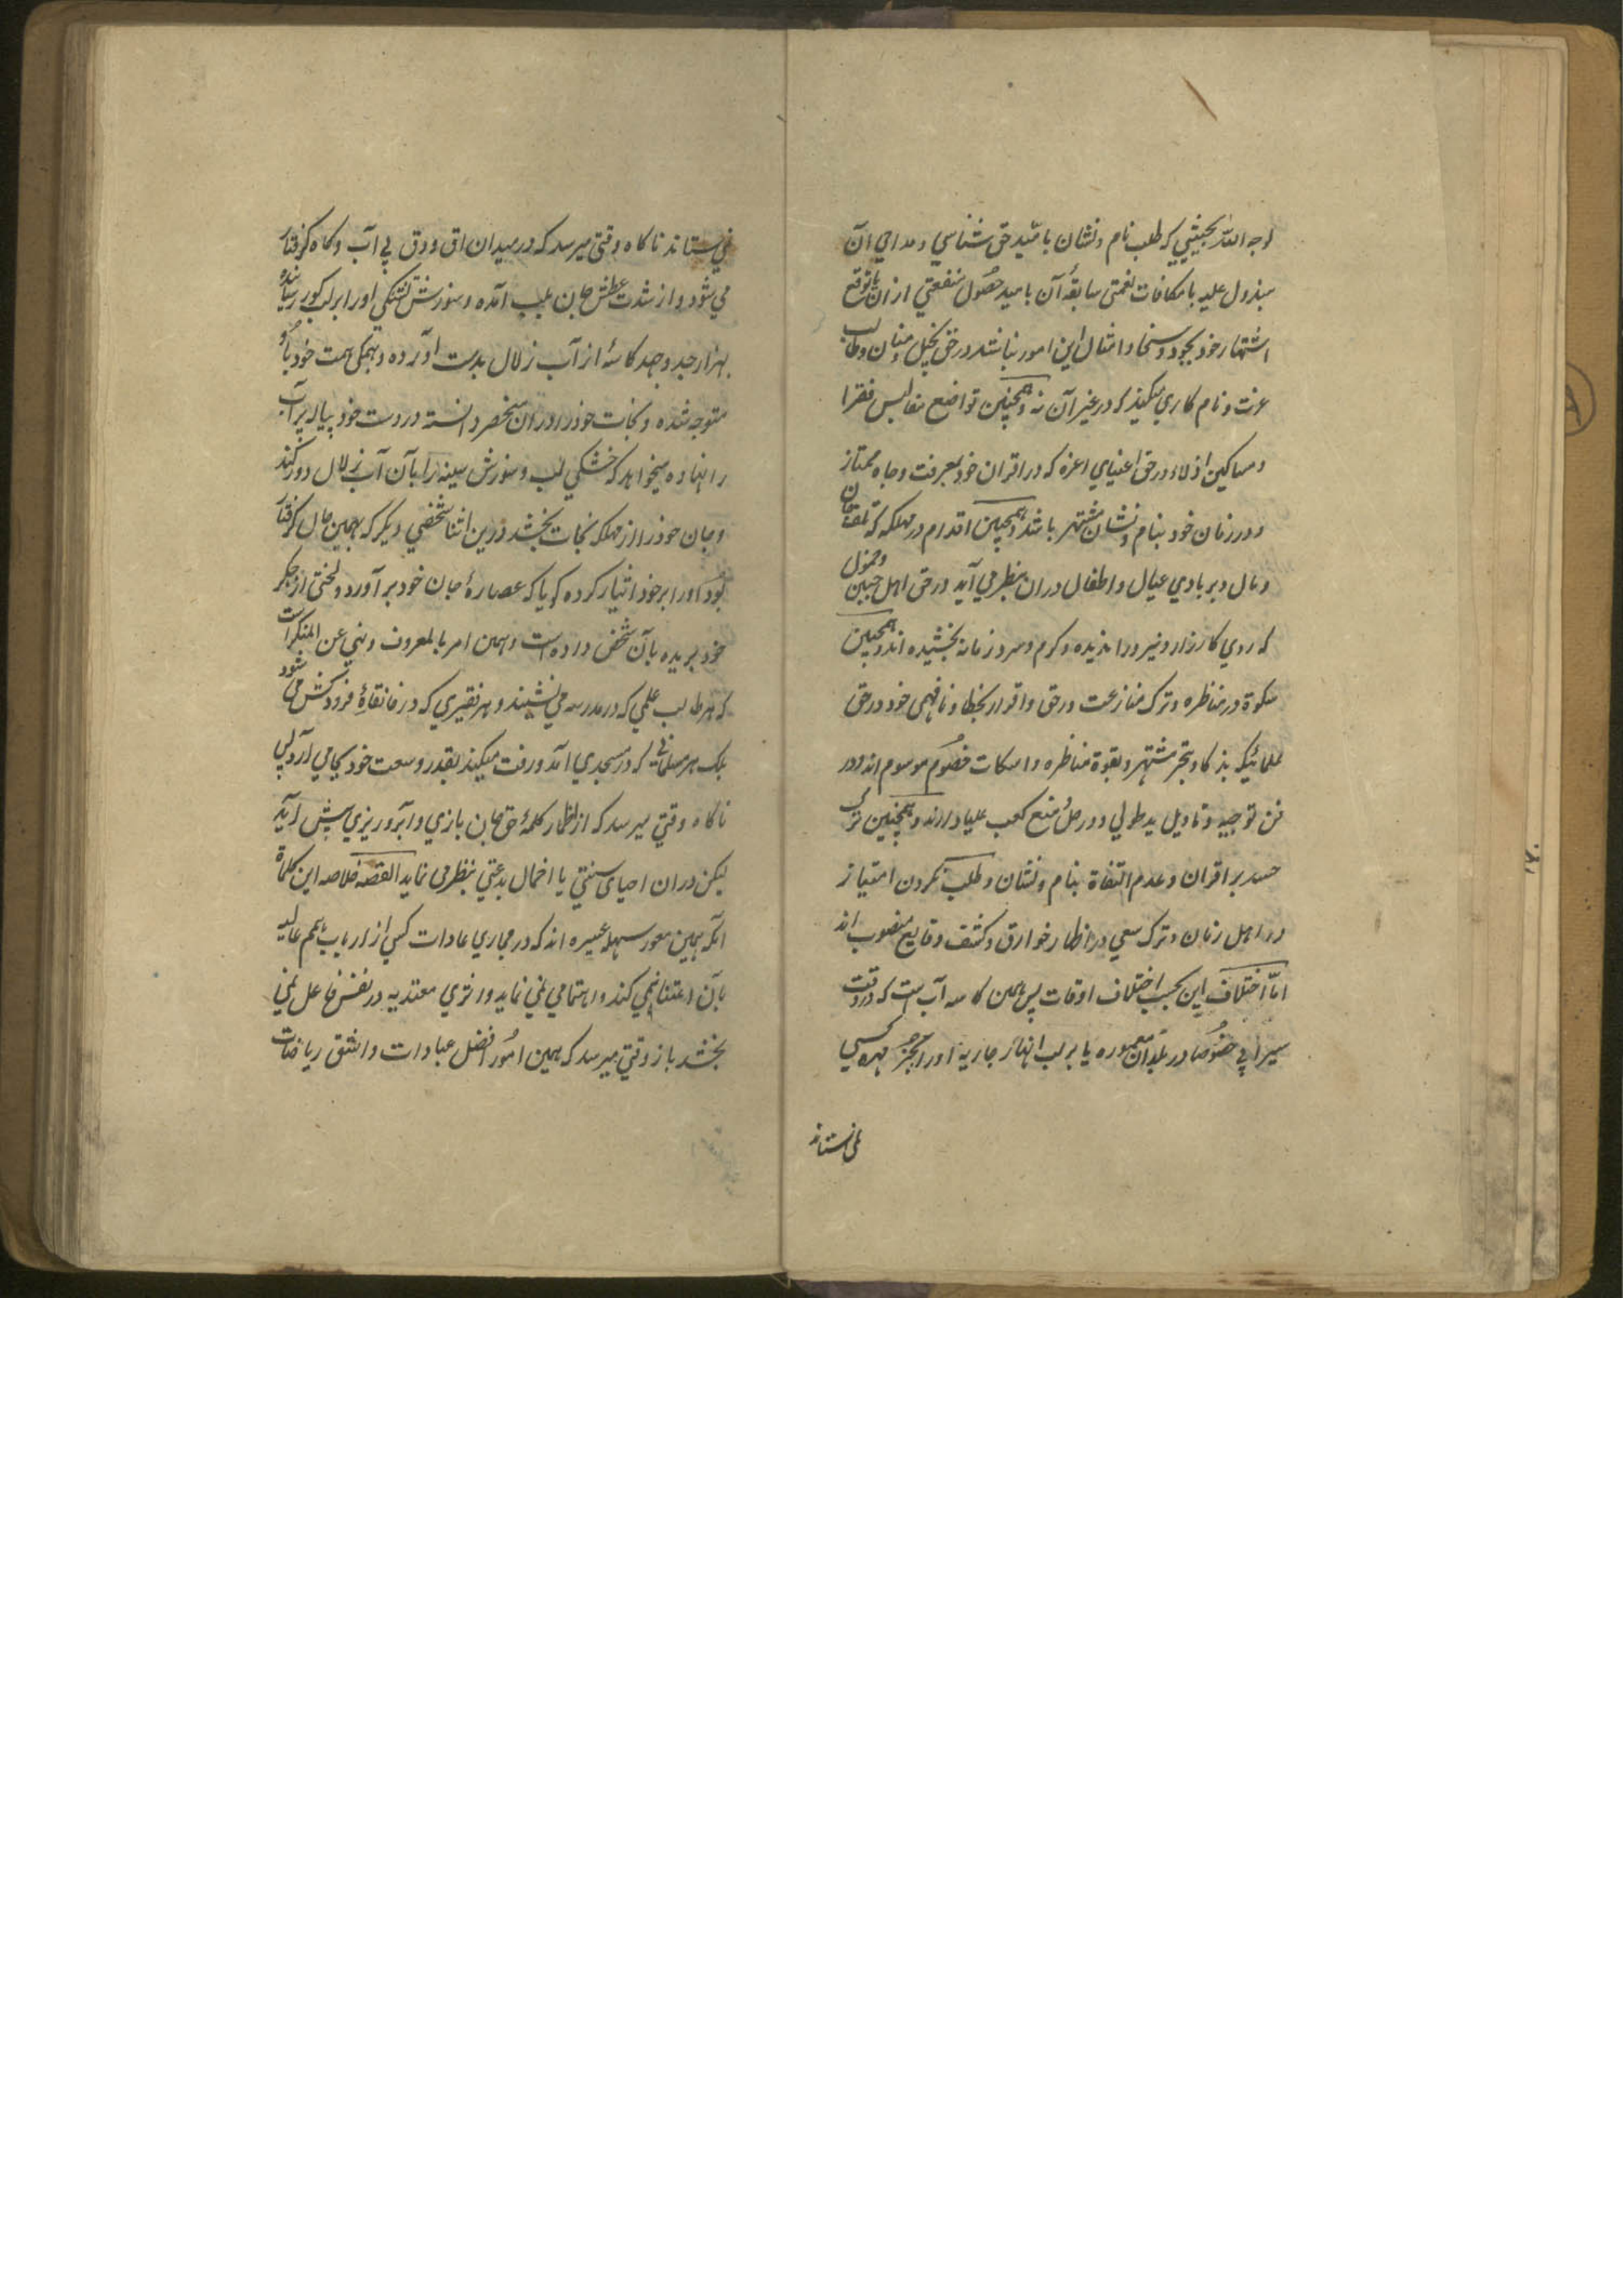 لوجه الله بحیثیتی که طلب نام و نشان بامید حق شناسی و مداحی آن
مبذول علیه یا مکافات نعمتی سابقه آن یا امید حصول منفعتی ازان یا توقع
اشتهار خود بجود و سخا و امثال این امور نباشد در حق بخیل و منان و طالب
عزت و نام کاری میکند که در غیر آن نه و همچنین تواضع مفالیس فقرا
و مساکین اذلاء در حق اغنیای اعزه که در اقران خود بمعرفت و جاه ممتاز
و در زمان خود بنام و نشان مشتهر باشند و همچنین اقدام در مهلکه که تلف جان
و مال و بربادی عیال و اطفال دران بنظر می آید در حق اهل جبن و خمول
که روی کارزار و نبرد را ندیده و گرم و سرد زمانه نچشیده اند و همچنین
سکوة در مناظره و ترک منازعت در حق و اقرار بخطا و نافهمی خود در حق
علمائیکه بذکا و تبحر مشتهر و بقوة مناظره و اسکات خصوم موسوم اند و در
فن توجیه و تاویل ید طولی و در حل و منع کعب علیا دارند و همچنین ترک
حسد بر اقران و عدم التفاة بنام و نشان و طلب نکردن امتیاز
در اهل زمان و ترک سعی در اظهار خوارق و کشف وقایع منصوب اند
اما اختلاف این بحسب اختلاف اوقات پس همین کاسه آب است که در وقت
سیرابی خصوصا در بلدان معموره یا بر لب انهار جاریه او را بجز مهره کسی
نمی ستاند
نمی ستاند ناگاه وقتی میرسد که در میدان لق و دق بی آب و گاه گرفتار
می شود و از شدت عطش جان بلب آمده و سوزش تشنگی او را بر لب گور رسانده
بهزار جد و جهد کاسهٔ از آب زلال بدست آورده و همگی همت خود باو
متوجه شده و نجات خود را در آن منحصر دانسته در دست خود پیاله پر آب
را نهاده میخواهد که خشکی لب و سوزش سینه را بآن آب زلال دور کند
و جان خود را از مهلکه نجات بخشد درین اثنا شخصی دیگر که بهمین حال گرفتار
بود او را بر خود اختیار کرده گویا که عصارهٔ جان خود برآورد و لختی از جگر
خود بریده بآن شخص داده است و همین امر بالمعروف و نهی عن المنکر است
که هر طالب علمی که در مدرسه می نشیند و هر فقیری که در خانقاه فروکش می شود
بلکه هر مسلمانی که در مسجدی آمد و رفت میکند بقدر وسعت خود بجا می آرد لیکن
ناگاه وقتی میرسد که از اظهار کلمهٔ حق جان بازی و آبرو ریزی پیش آید
لیکن دران احیای سنتی یا اخمال بدعتی بنظر می نماید القصه خلاصه این کلماة
آنکه همین امور سهله عسیره اند که در مجاری عادات کسی از ارباب همم عالیه
بآن اعتنا نمی کند و اهتمامی نمی نماید و اثری معتد به در نفس فاعل نمی
بخشد باز وقتی میرسد که همین امور افضل عبادات و اشق ریاضات